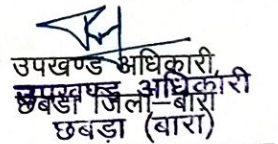 उपखण्ड अधिकारी,
उपखण्ड अधिकारी
छबडा जिला-बारा
छबड़ा (बारां)